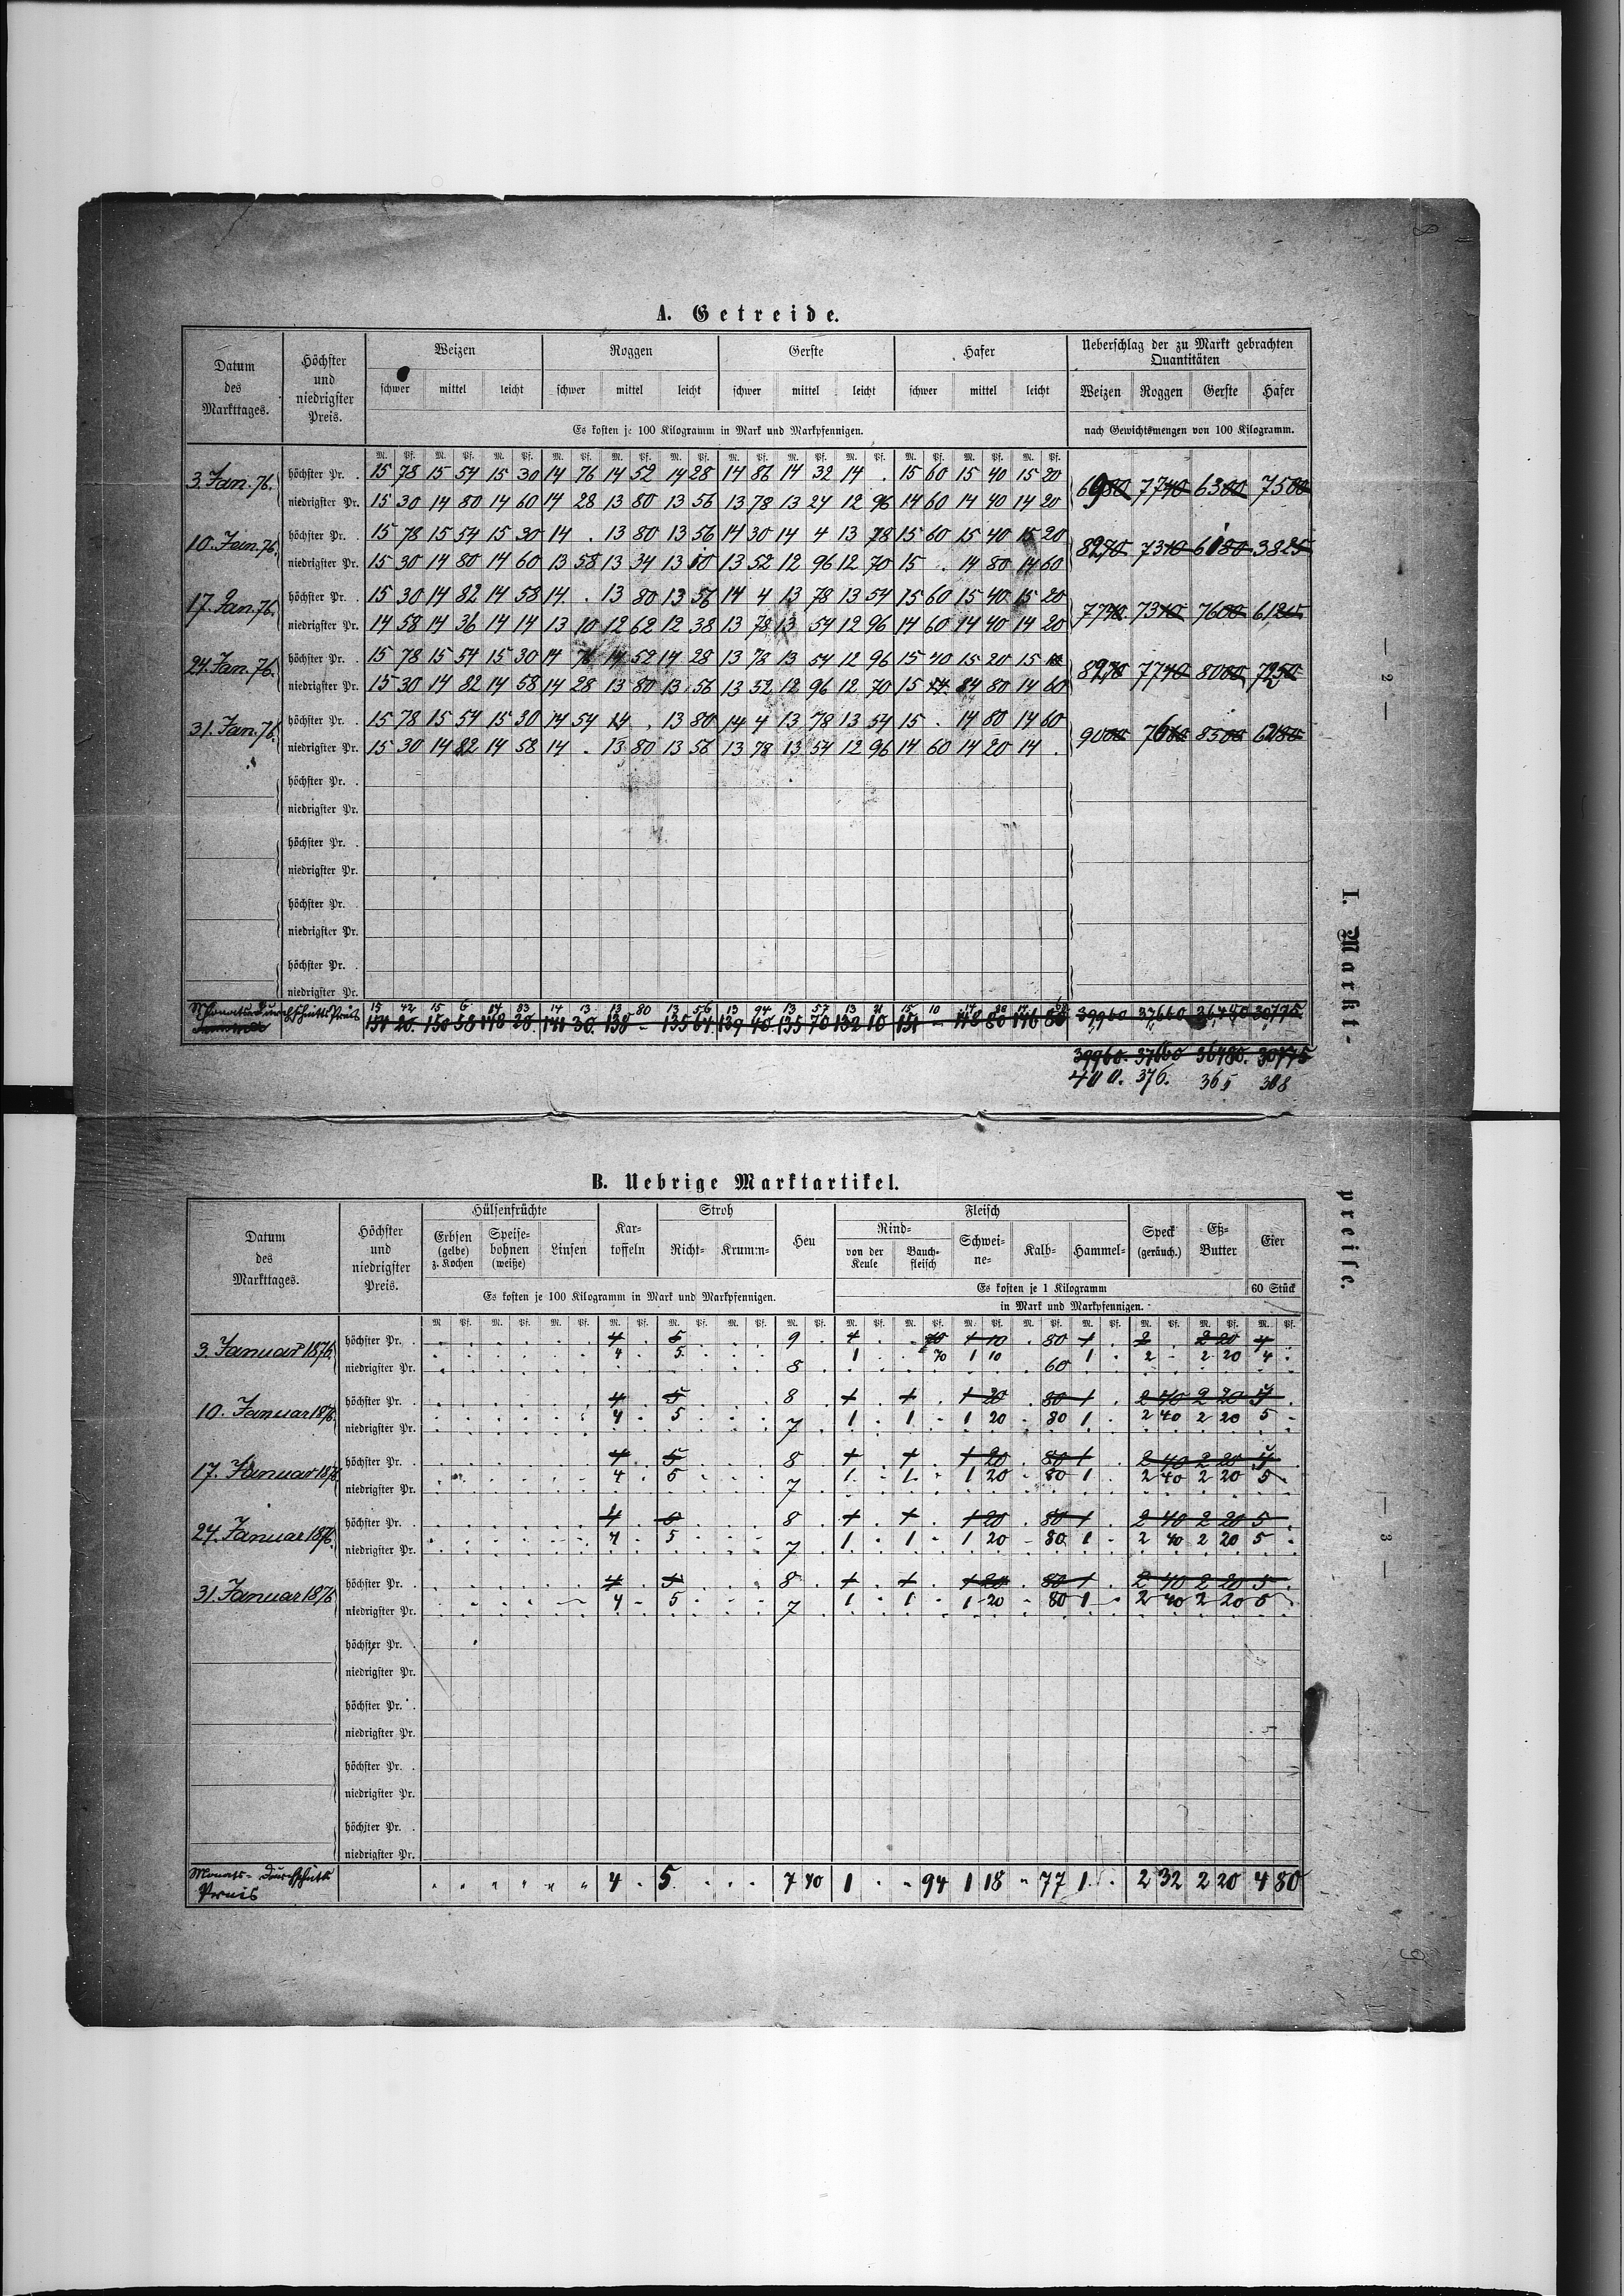 A. Getreide.
Datum des Markttages. Höchster und niedrigster Preis. Weizen Roggen Gerste Hafer Ueberschlag der zu Markt gebrachten Quantitäten
schwer mittel leicht schwer mittel leicht schwer mittel leicht schwer mittel leicht Weizen Roggen Gerste Hafer
Es kosten je 100 Kilogramm in Mark und Markpfennigen. nach Gewichtsmengen von 100 Kilogramm.
M. Pf. M. Pf. M. Pf. M. Pf. M. Pf. M. Pf. M. Pf. M. Pf. M. Pf. M. Pf. M. Pf. M. Pf.
3. Jan. 76. höchster Pr. 15 78 15 54 15 30 14 76 14 52 14 28 14 86 14 32 14 . 15 60 15 40 15 20 6980 7740 6300 7500
niedrigster Pr. 15 30 14 80 14 60 14 28 13 80 13 56 13 78 13 24 12 96 14 60 14 40 14 20
10. Jan. 76. höchster Pr. 15 78 15 54 15 30 14 . 13 80 13 56 14 30 14 4 13 78 15 60 15 40 15 20 8270 7310 6180 3825
niedrigster Pr. 15 30 14 80 14 60 13 58 13 34 13 10 13 52 12 96 12 70 15 . 14 80 14 60
17. Jan. 76. höchster Pr. 15 30 14 82 14 58 14 . 13 80 13 56 14 4 13 78 13 54 15 60 15 40 15 20 7740 7310 7600
niedrigster Pr. 14 58 14 36 14 14 13 10 12 62 12 38 13 78 13 54 12 96 14 60 14 40 14 20
24. Jan. 76. höchster Pr. 15 78 15 54 15 30 14 76 14 52 14 28 13 78 13 54 12 96 15 40 15 20 15 8000 7250
niedrigster Pr. 15 30 14 82 14 58 14 28 13 80 13 56 13 52 12 96 12 70 15 14 80 14 60
31. Jan. 76. höchster Pr. 15 78 15 54 15 30 14 54 14 . 13 80 14 4 13 78 13 54 15 . 14 80 14 60 9000 8500
niedrigster Pr. 15 30 14 82 14 58 14 . 13 80 13 56 13 78 13 54 12 96 14 60 14 20 14 .
höchster Pr.
niedrigster Pr.
höchster Pr.
niedrigster Pr.
höchster Pr.
niedrigster Pr.
höchster Pr.
niedrigster Pr.
15 42 15 6 14 83 14 13 13 80 13 56 13 94 13 57 13 21 15 10 14
154 20 150 58 148 30 141 30 138 - 135 64 139 40 135 70 132 10 151 - 148 80 146 80 39960 37660 36480 30775
39960. 37660 36480. 30775
400. 376. 365 308
I. Markt-
— 2 —
B. Uebrige Marktartikel.
Datum des Markttages. Höchster und niedrigster Preis. Hülsenfrüchte Kar-toffeln Stroh Heu Fleisch Speck (geräuch.) Eß-Butter Eier
Erbsen (gelbe) z. Kochen Speise-bohnen (weiße) Linsen Richt- Krumm- Rind- von der Keule Bauch-fleisch Schwei-ne- Kalb- Hammel-
Es kosten je 100 Kilogramm in Mark und Markpfennigen. Es kosten je 1 Kilogramm 60 Stück
in Mark und Markpfennigen.
M. Pf. M. Pf. M. Pf. M. Pf. M. Pf. M. Pf. M. Pf. M. Pf. M. Pf. M. Pf. M. Pf. M. Pf. M. Pf. M. Pf. M. Pf.
3. Januar 1876. höchster Pr. 4 5 9 1 70 1 10 80 1 2 2 20 4
niedrigster Pr. 4 5 8 1 70 1 10 60 1 2 2 20 4
10. Januar 1876. höchster Pr. 4 5 8 1 1 1 20 80 1 2 40 2 20
niedrigster Pr. 4 5 7 1 1 1 20 80 1 2 40 2 20 5
17. Januar 1876. höchster Pr. 4 5 8 1 1 1 20 80 1 2 40 2 20
niedrigster Pr. 4 5 7 1 1 1 20 80 1 2 40 2 20 5
24. Januar 1876. höchster Pr. 4 8 1 1 1 20 80 1 2 40 2 20 5
niedrigster Pr. 4 5 7 1 1 1 20 80 1 2 40 2 20 5
31. Januar 1876 höchster Pr. 4 5 8 1 1 1 20 80 1 2 40 2 20 5
niedrigster Pr. 4 5 7 1 1 1 20 80 1 2 40 2 20 5
höchster Pr.
niedrigster Pr.
höchster Pr.
niedrigster Pr.
höchster Pr.
niedrigster Pr.
höchster Pr.
niedrigster Pr.
Monats-Durchschnitts Preis 4 . 5 7 40 1 94 1 18 77 1 2 32 2 20 4 80
preise.
— 3 —